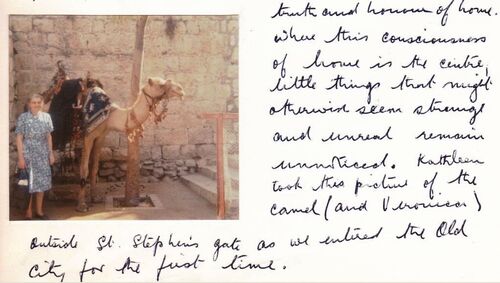 truth and honour of home.
Where this consciousness
of home is the centre,
little things that might
otherwise seem strange
and unreal remain
unnoticed. Kathleen
took this picture of the
camel (and Veronica)
outside St. Stephen's gate as we entered the Old
City for the first time.